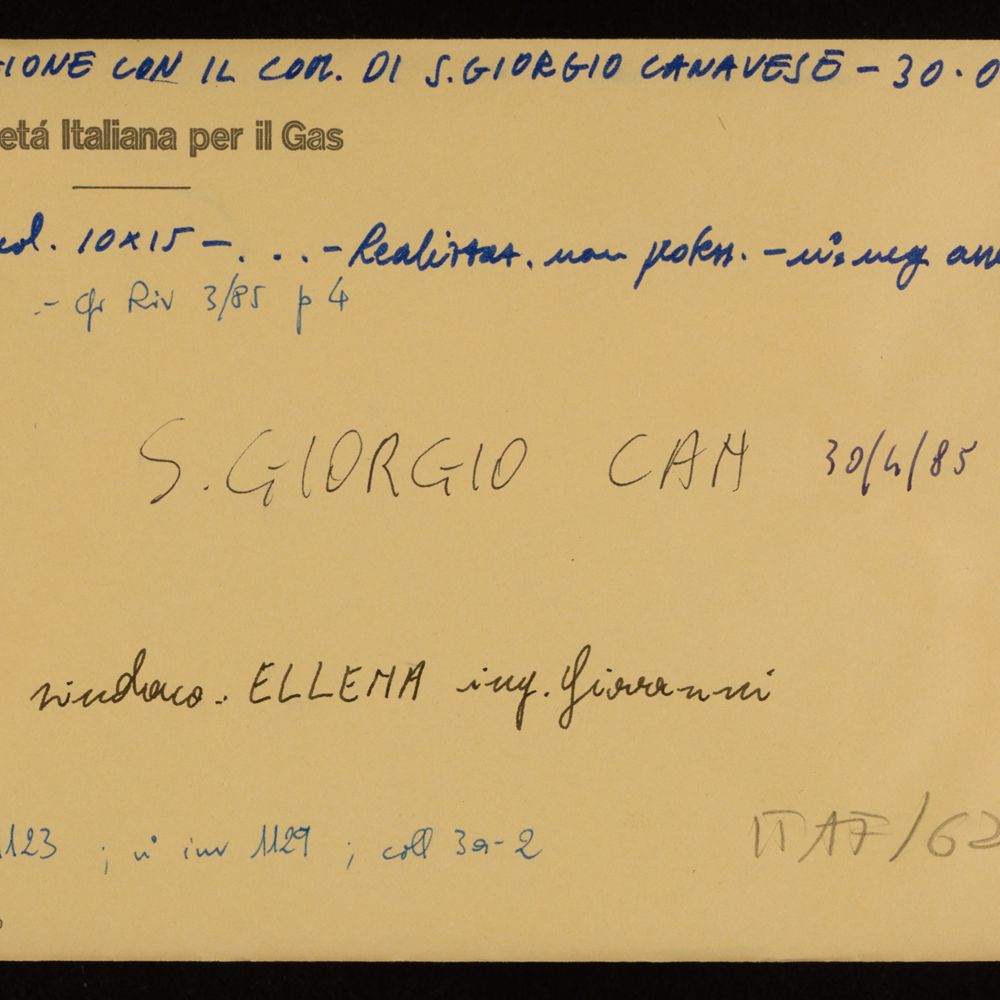 IONE CON IL COM. DI S.GIORGIO CANAVESE - 30.0
età Italiana per il Gas
col. 10x15 - . . . - Realizzaz. non pots. - n° neg
- cfr Riv 3/85 p 4
S. GIORGIO CAN 30/4/85
sindaco. ELLENA ing. Giovanni
1123 ; n° inv 1129 ; coll 3a-2
ITAF/62